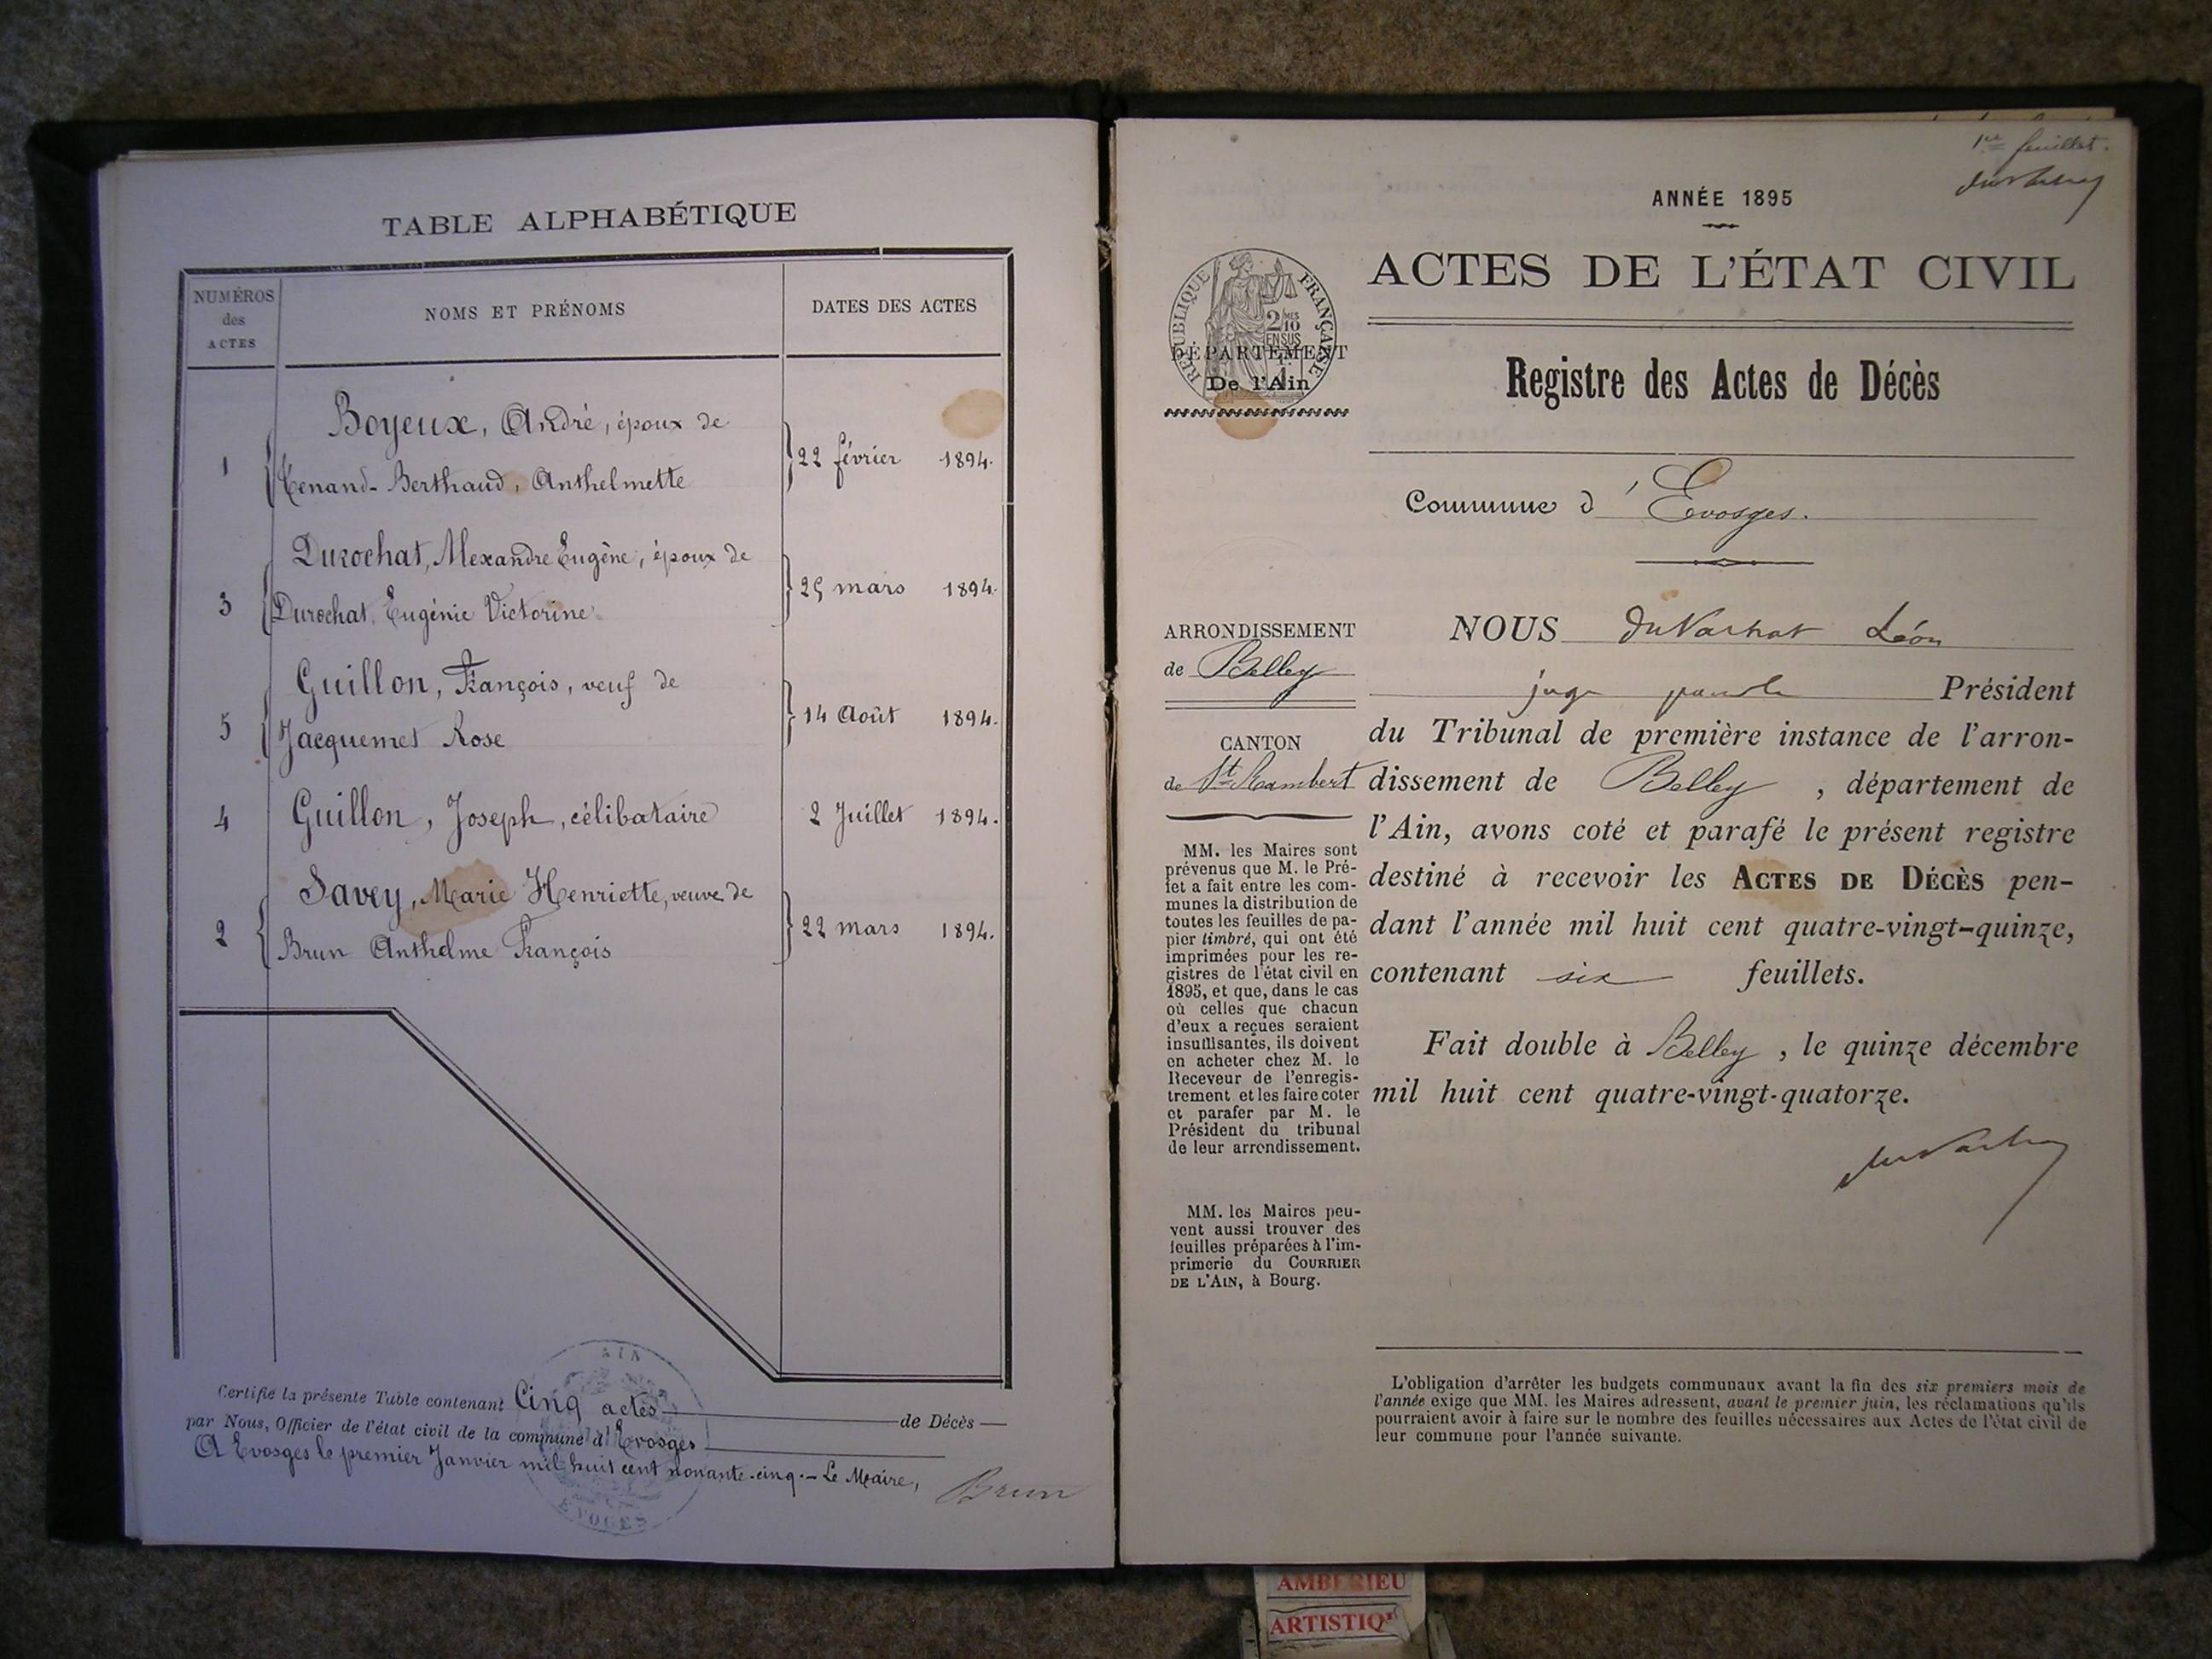 TABLE ALPHABÉTIQUE
NUMÉROS
des
ACTES
NOMS ET PRÉNOMS
DATES DES ACTES
Boyeux, André, époux de
1
22 février 1894.
Tenand-Berthaud, Anthelmette
Durochat, Alexandre Eugène, époux de
3
25 mars 1894.
Durochat, Eugénie Victorine
Guillon, François, veuf de
5
14 Août 1894.
Jacquemet Rose
4 Guillon, Joseph, célibataire 2 Juillet 1894.
Savey, Marie Henriette, veuve de
2
22 mars 1894.
Brun Anthelme François
Certifié la présente Table contenant Cinq actes de Décès
par Nous, Officier de l'état civil de la commune d'Evosges
A Evosges le premier Janvier mil huit cent nonante-cinq. - Le Maire,
Brun
AIN
EVOGES
1er feuillet.
ANNÉE 1895
ACTES DE L'ÉTAT CIVIL
RÉPUBLIQUE FRANÇAISE
2/10 MES
EN SUS
DÉPARTEMENT
De l'Ain
Registre des Actes de Décès
Commune d'Evosges.
ARRONDISSEMENT
de Belley
CANTON
de St Rambert
MM. les Maires sont
prévenus que M. le Pré-
fet a fait entre les com-
munes la distribution de
toutes les feuilles de pa-
pier timbré, qui ont été
imprimées pour les re-
gistres de l'état civil en
1895, et que, dans le cas
où celles que chacun
d'eux a reçues seraient
insuffisantes, ils doivent
en acheter chez M. le
Receveur de l'enregis-
trement et les faire coter
et parafer par M. le
Président du tribunal
de leur arrondissement.
MM. les Maires peu-
vent aussi trouver des
feuilles préparées à l'im-
primerie du COURRIER
DE L'AIN, à Bourg.
NOUS Léon
juge Président
du Tribunal de première instance de l'arron-
dissement de Belley, département de
l'Ain, avons coté et parafé le présent registre
destiné à recevoir les ACTES DE DÉCÈS pen-
dant l'année mil huit cent quatre-vingt-quinze,
contenant six feuillets.
Fait double à Belley, le quinze décembre
mil huit cent quatre-vingt-quatorze.
L'obligation d'arrêter les budgets communaux avant la fin des six premiers mois de
l'année exige que MM. les Maires adressent, avant le premier juin, les réclamations qu'ils
pourraient avoir à faire sur le nombre des feuilles nécessaires aux Actes de l'état civil de
leur commune pour l'année suivante.
AMBERIEU
ARTISTIQ